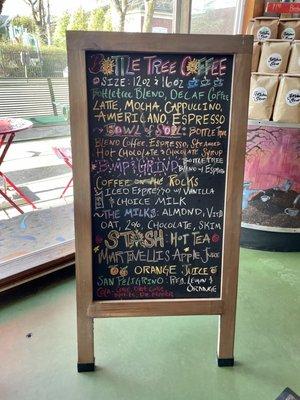 Bottle Tree Coffee
Size: 12oz & 16oz
Bottletree Blend, Decaf Coffee
Latte, Mocha, Cappuccino,
Americano, Espresso
Bowl of Soul: Bottle Tree
Blend Coffee, Espresso, Steamed
Hot Chocolate & Chocolate Syrup
Bump & Grind: Bottle Tree
Blend + Espresso
Coffee on the Rocks
Iced Espresso w/ Vanilla
+ Choice Milk
The Milks: Almond,
Oat, 2%, Chocolate, Skim
Stash Hot Tea
Martinelli's Apple Juice
Orange Juice
San Peligrino: Reg, Lemon &
Orange
Cola - Coke, Diet Coke,